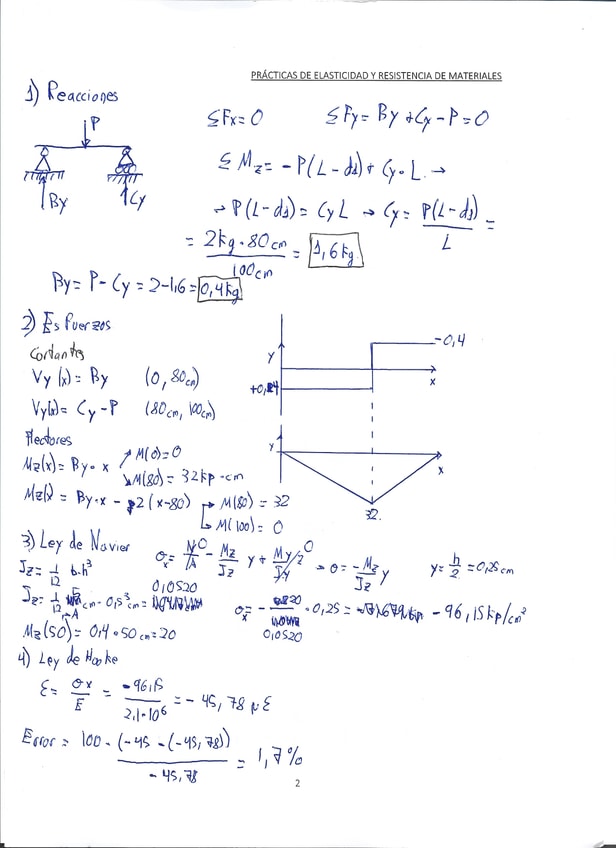 PRÁCTICAS DE ELASTICIDAD Y RESISTENCIA DE MATERIALES
1) Reacciones
P
By
Cy
ΣFx = 0 ΣFy = By + Cy - P = 0
ΣMz = -P(L-d1) + Cy·L →
→ P(L-d1) = Cy L → Cy = P(L-d1)/L =
= 2kg·80cm/100cm = 1,6 kg.
By = P - Cy = 2-1,6 = 0,4 kg
2) Esfuerzos
Cortantes
Vy(x) = By (0, 80cm)
Vy(x) = Cy - P (80cm, 100cm)
Flectores
Mz(x) = By·x → M(0) = 0
→ M(80) = 32 kp·cm
Mz(x) = By·x - 2(x-80) → M(80) = 32
→ M(100) = 0
y
-0,4
x
y
x
32.
3) Ley de Navier
σx = N/A - Mz/Jz y + My/Jy z → σ = -Mz/Jz y y = h/2 = 0,25 cm
0 0
Jz = 1/12 b·h³
Jz = 1/12 cm·0,5³cm = 0,0520
σx = - /0,0520 · 0,25 = -96,15 kp/cm²
Mz(50) = 0,4·50cm = 20
4) Ley de Hooke
ε = σx/E = -96,15/2,1·10⁶ = -45,78 με
Error = 100·(-45-(-45,78))/-45,78 = 1,7%
2